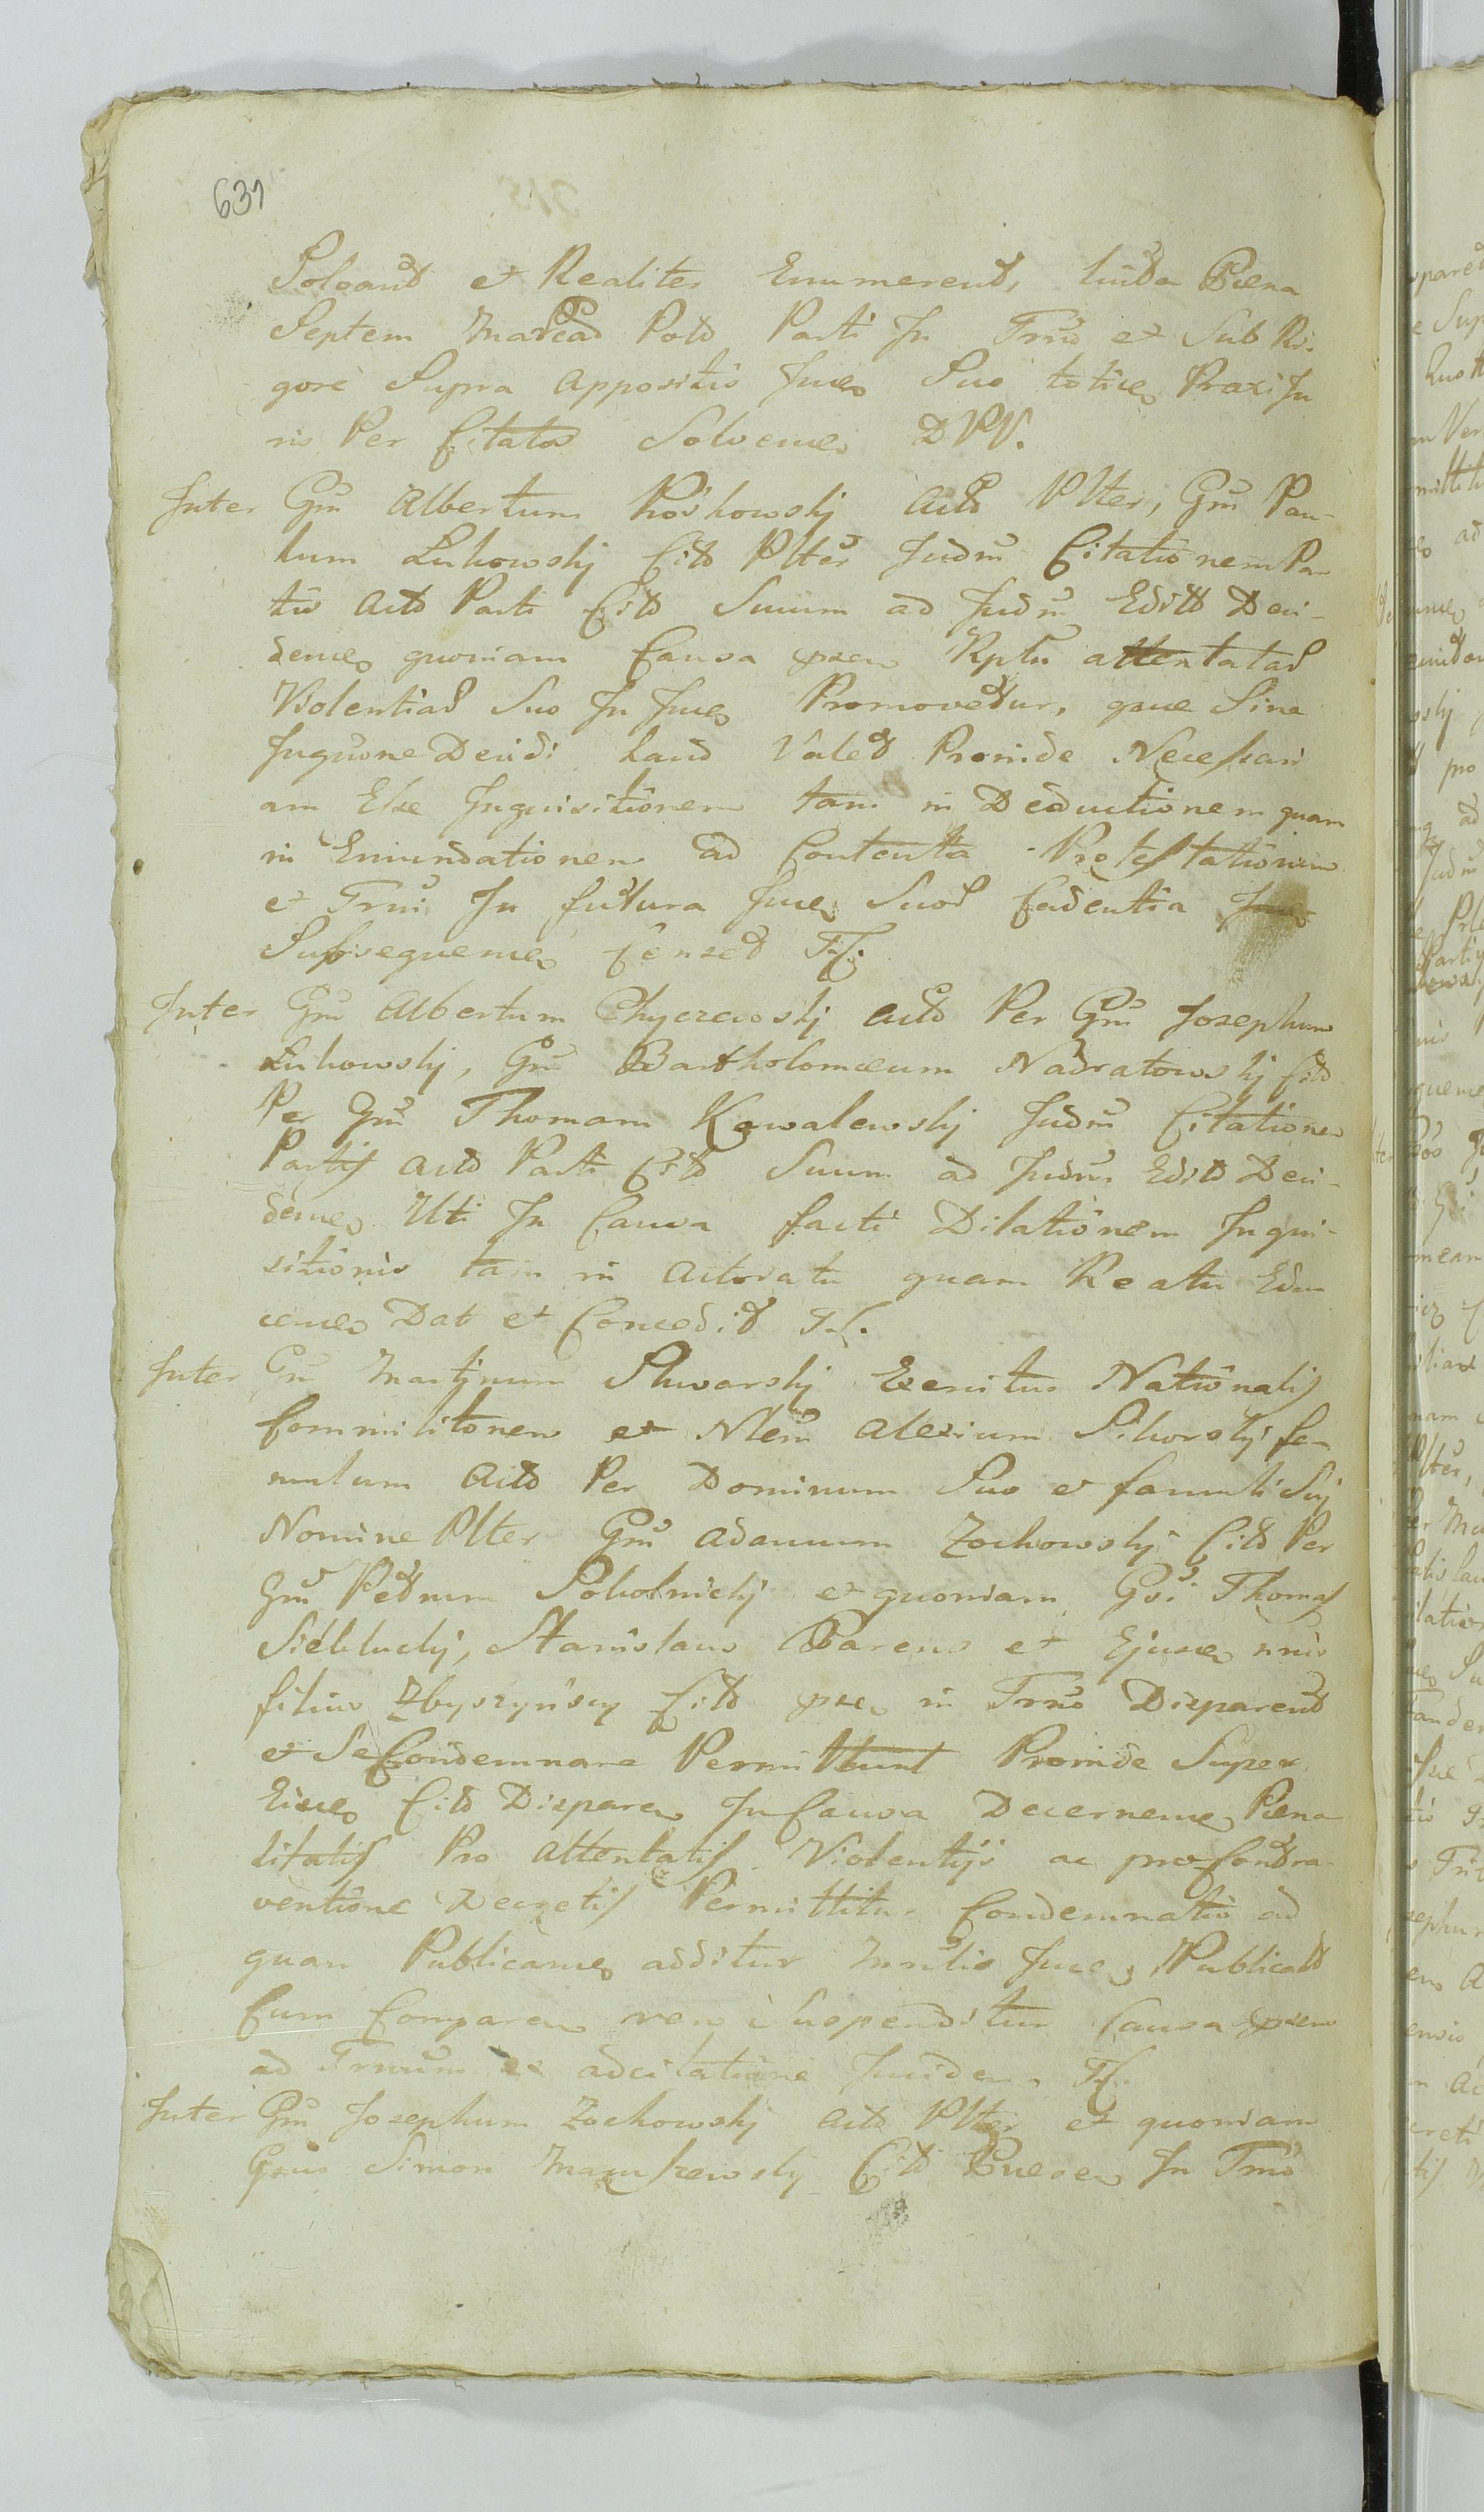 631
Solvant et Realiter Enumerent, luita Paena
Septem Marcar Potd Parti In Trno et Sub Ri-
gore Supra appositis Jues Suo toties Praxi Ju
ris Per Citatos Solvemes DPV.
Inter Gm Albertum Roskowskj actd Plter, Gm Pau-
lum Lukowskj Citd Plter Judm Citationem Par
tis actd Parti Citd Suum ad Judm Editd Deci-
demes quoniam Causa psen Rptu attentatar
Violentiar Suo In Jues Promovetur, quae Sine
Inquone Decidi haud Valet Proinde Necessari
am Esse Inquisitionem tam in Deductionem quam
in Emundationem ad Contenta Protestationum
et Trni In futura Jues Suor Cadentia
Subsequemes Censet TL.
Inter Gm Albertum Chyczewskj actd Per Gm Josephum
Lukowskj, Gm Bartholomaeum Nadratowskj Citd
Per Gm Thomam Kowalewskj Judm Citationem
Partis actd Parti Citd Suum ad Judm Editd Deci-
demes Uti In Causa facti Dilationem Inqui-
sitionis tam in actoratu quam Reatu Edu
cemes Dat et Concedit TL.
Inter Gm Martinum Skwarskj Exercitus Nationalis
Commilitonem et Nlem Alexium Sikorskj fa-
mulum actd Per Dominum Suo et famuli Sui
Nomine Plter Gm Adamum Zochowskj Citd Per
Gm Petrum Sokolnickj et quoniam Gsi Thomas
Siekluckj, Stanislaus Parens et Ejusces nnis
filius Zbyszynscy Citd psen in Trno Disparent
et Se Condemnare Permittunt Proinde Super
Eisces Citd Disparen In Causa Decernemes Paena
litatis Pro attentatis Violentijs ac pro Contra
ventione Decretis Permittitur Condemnatio ad
quam Publicames additur Mntlis Jues, Publicatd
Cum Comparen vero Suspenditur Causa psens
ad Trnum ex adcitatione Inciden. TL.
Inter Gm Josephum Zochowskj actd Plter et quoniam
Gsus Simon Maruszewskj Citd Puesen In Trno